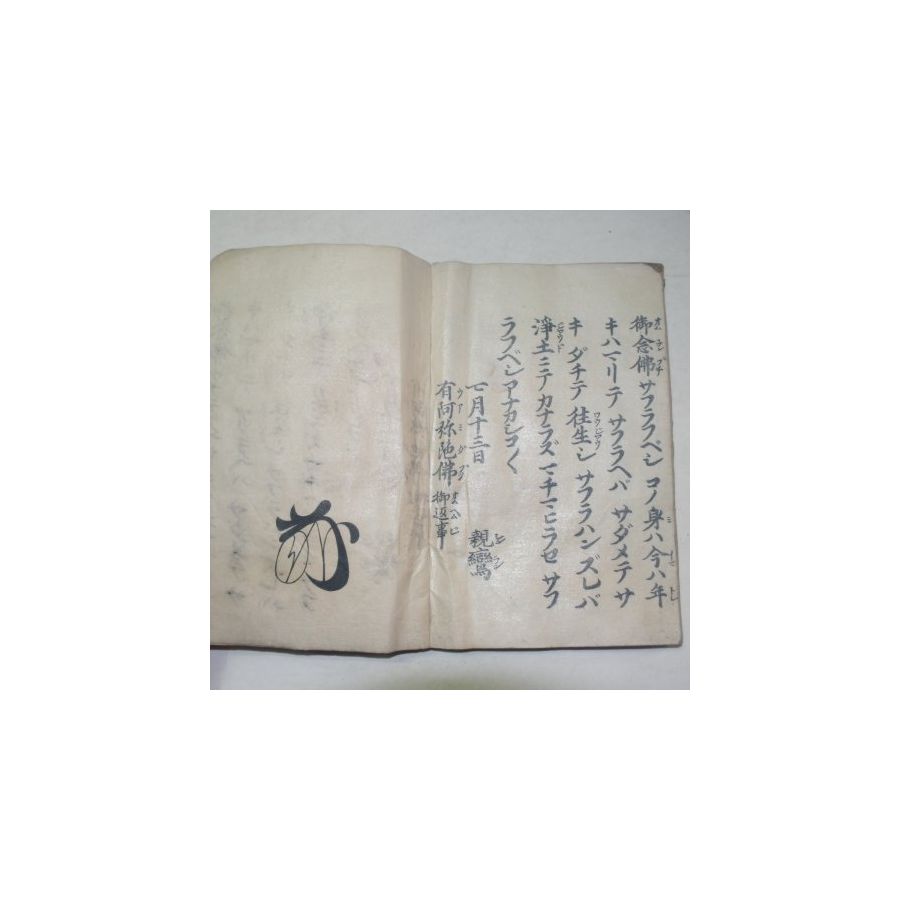 御念佛サフラフベシコノ身ハ今ハ年
キハマリテサフラヘバサダメテサ
キダチテ往生シサフラハンズレバ
淨土ニテカナラズマチマヒラセサフ
ラフベシアナカシコ〱
七月十三日
親鸞
有阿弥陀佛御返事